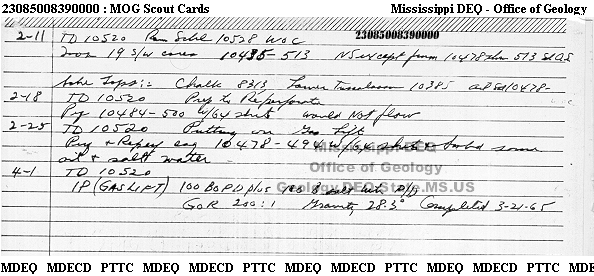 23085008390000 : MOG Scout Cards Mississippi DEQ - Office of Geology
23085008390000
2-11 TD 10520 Ran Schl 10528 WOC
19 S/W cores 10435-513 NS except from 10478 513
Tops:- Chalk 8313 Lower Tuscaloosa 10385
2-18 TD 10520 Prep to Reperforate
Perf 10484-500 w/64 shots would Not flow
2-25 TD 10520 Putting on Gas Lift
Perf & Reperf 10478-494 w/64 shots & swbd some
oil & salt water
Mississippi DEQ
Office of Geology
Geology.DEQ.State.MS.US
4-1 TD 10520
IP (GAS LIFT) 100 BOPD plus 100 B salt wtr P/D
GOR 200:1 Gravity 28.3° Completed 3-21-65
MDEQ MDECD PTTC MDEQ MDECD PTTC MDEQ MDECD PTTC MDEQ MDECD PTTC MDE